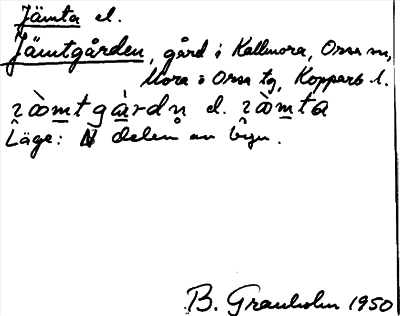 Jämta el.
Jämtgården, gård i Kallmora, Orsa sn,
Mora o Orsa tg, Kopparb l.
Läge: N delen av byn.
B. Granholm 1950